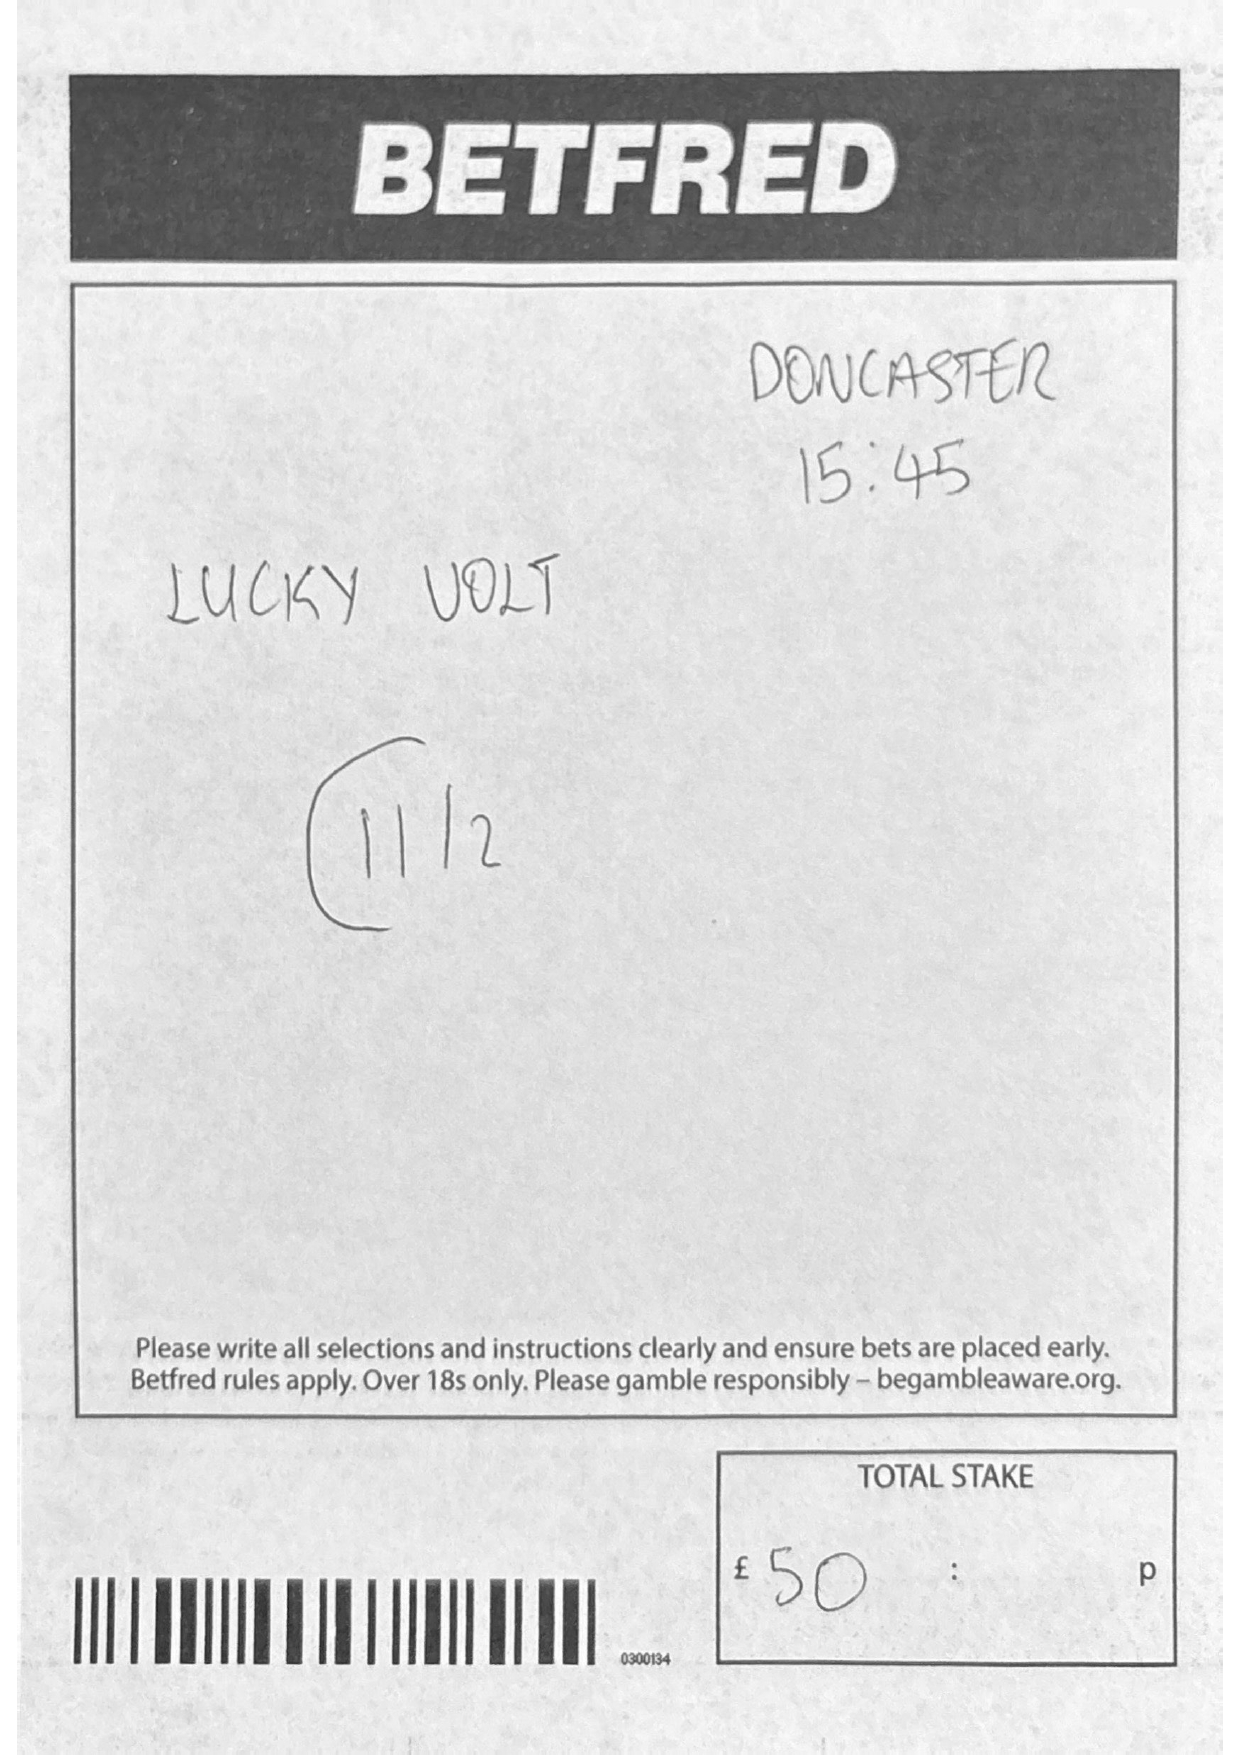 BETFRED
DONCASTER
15:45
LUCKY VOLT
11/2
Please write all selections and instructions clearly and ensure bets are placed early.
Betfred rules apply. Over 18s only. Please gamble responsibly – begambleaware.org.
TOTAL STAKE
£ 50 : p
0300134